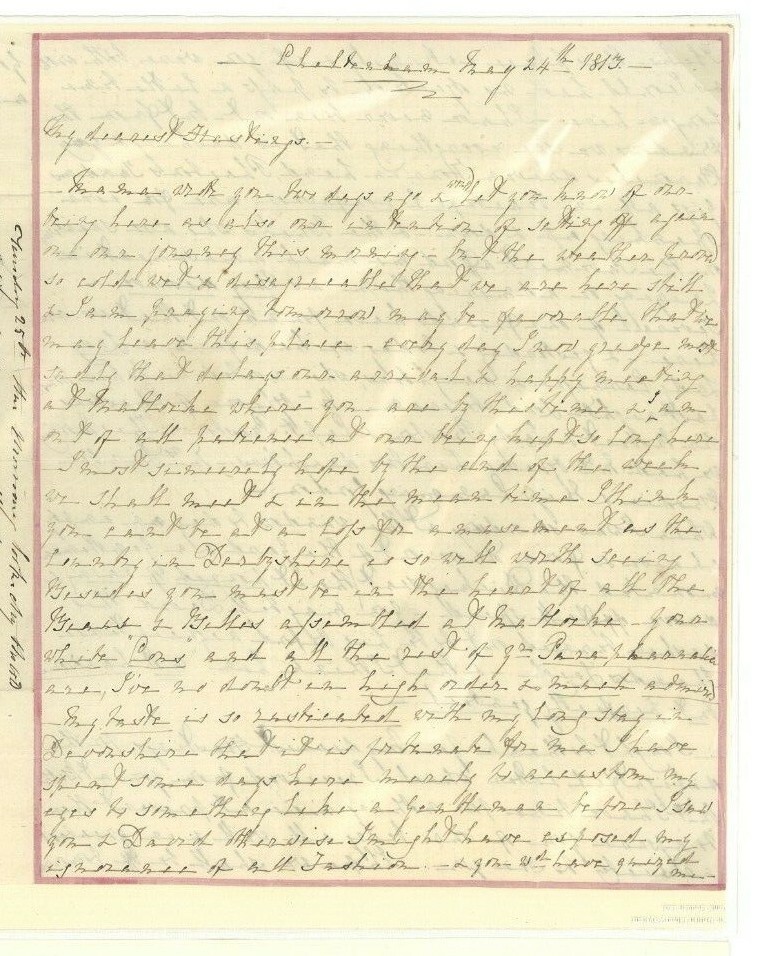 — Cheltenham May 24th 1813. —
My dearest Hastings. —
Mama wrote you two days ago & let you know of our
being here as also our intention of setting off again
on our journey this morning — but the weather proved
so cold wet & disagreeable that we are here still
& I am praying tomorrow may be favorable that we
may leave this place — every day I now grudge most
sadly that delays our arrival & happy meeting
at Matlocke where you are by this time & I am
out of all patience at our being kept so long here
I most sincerely hope by the end of the week
we shall meet & in the mean time I think
you cant be at a loss for amusement as the
Country in Derbyshire is so well worth seeing
Besides you must be in the heart of all the
Beaus & Belles assembled at Matlocke — your
white "Cons" and all the rest of yr Paraphernalia
are, I've no doubt in high order & much admired
— My taste is so rusticated with my long stay in
Devonshire that it is fortunate for me I have
spent some days here merely to accustom my
eyes to something like a Gentleman before I see
you & David otherwise I might have exposed my
ignorance of all Fashion. — & you wd have quizzed
me —
25th this